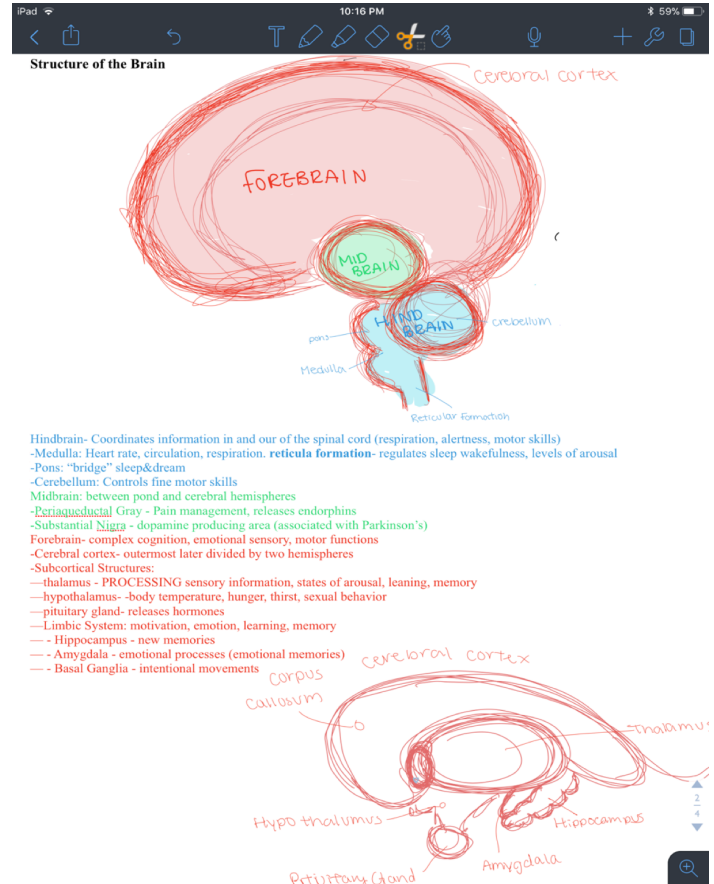 iPad
10:16 PM
59%
T
Structure of the Brain
Cerebral cortex
FOREBRAIN
MID
BRAIN
HIND
BRAIN
pons
crebellum
Medulla
Reticular Formation
Hindbrain- Coordinates information in and our of the spinal cord (respiration, alertness, motor skills)
-Medulla: Heart rate, circulation, respiration. reticula formation- regulates sleep wakefulness, levels of arousal
-Pons: “bridge” sleep&dream
-Cerebellum: Controls fine motor skills
Midbrain: between pond and cerebral hemispheres
-Periaqueductal Gray - Pain management, releases endorphins
-Substantial Nigra - dopamine producing area (associated with Parkinson’s)
Forebrain- complex cognition, emotional sensory, motor functions
-Cerebral cortex- outermost later divided by two hemispheres
-Subcortical Structures:
—thalamus - PROCESSING sensory information, states of arousal, leaning, memory
—hypothalamus- -body temperature, hunger, thirst, sexual behavior
—pituitary gland- releases hormones
—Limbic System: motivation, emotion, learning, memory
— - Hippocampus - new memories
— - Amygdala - emotional processes (emotional memories)
— - Basal Ganglia - intentional movements
cerebral cortex
corpus
callusum
Thalamus
2
4
Hypothalumus
Hippocampus
Amygdala
Gland